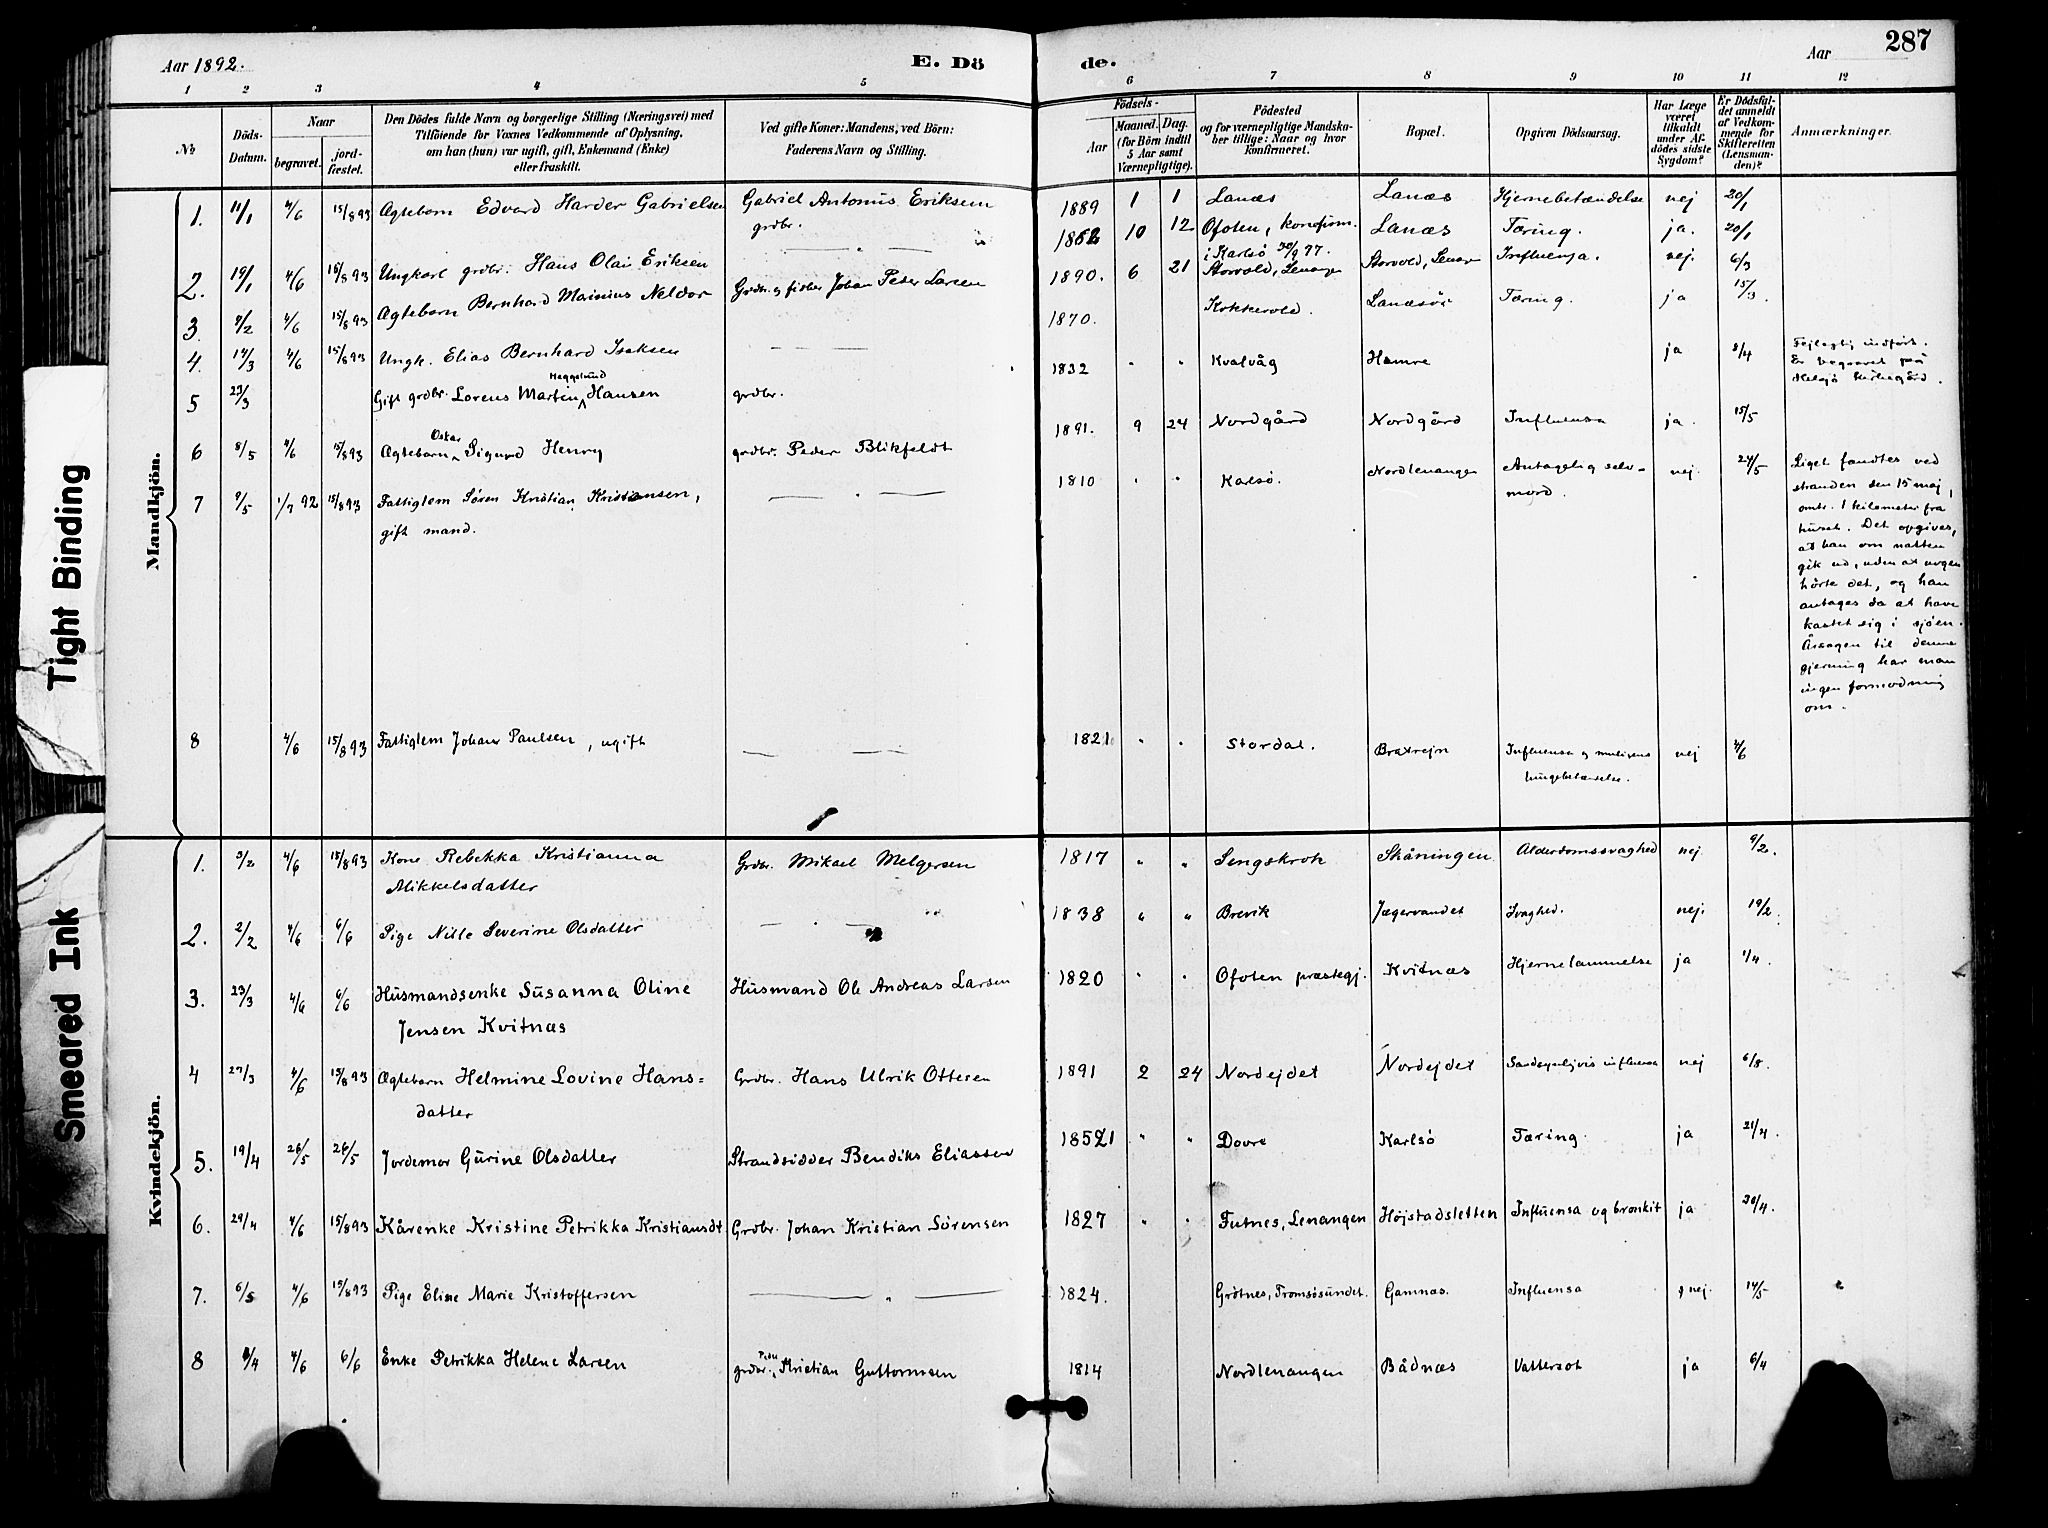 Aar 1892.
E. Dö
de.
Aar
287
1 2 3 4 5 6 7 8 9 10 11 12
No
Döds-Datum.
Naar
begravet.
jord-fæstet.
Den Dödes fulde Navn og borgerlige Stilling (Næringsvei) med
Tilföiende for Voxnes Vedkommende af Oplysning,
om han (hun) var ugift, gift, Enkemand (Enke)
eller fraskilt.
Ved gifte Koner: Mandens, ved Börn:
Faderens Navn og Stilling.
Födsels-
Aar
Maaned. Dag.
(for Börn indtil
5 Aar samt
Værnepligtige).
Födested
og for værnepligtige Mandska-
ber tillige: Naar og hvor
konfirmeret.
Bopæl.
Opgiven Dödsaarsag.
Har Læge
været
tilkaldt
under Af-
dödes sidste
Sygdom?
Er Dödsfal-
det anmeldt
af Vedkom-
mende for
Skifteretten
(Lensman-
den)?
Anmærkninger.
Mandkjön.
1. 11/1 4/6 15/8 93 Ægtebarn Edvard Harder Gabrielsen Gabriel Antonius Eriksen grdbr. 1889 1 1 Lanæs Lanæs Hjernebetændelse nej 20/1
2. 19/1 4/6 15/8 93 Ungkarl grdbr. Hans Olai Eriksen 1862 10 12 Ofoten, konfirm. i Karlsö 30/9 77. Lanæs Tæring. ja. 20/1
3. 9/2 4/6 15/8 93 Ægtebarn Bernhard Mainius Neldor Grdbr. og fisker Johan Peter Larsen 1890. 6 21 Storvold, Lenangen Storvold, Lenangen Influensa. nej. 6/3
4. 14/3 4/6 15/8 93 Ungk. Elias Bernhard Isaksen 1870. Kokkevold. Lanæsör Tæring. ja 15/3.
5 23/3 Gift grdbr. Lorens Martin Heggelund Hansen grdbr. 1832 " " Kvalvåg Hamre ja 8/4 Fejlagtig indført.
Er begravet på
Helgö kirkegård.
6 8/5 4/6 15/8 93 Ægtebarn Oskar Sigurd Henry grdbr. Peder Blikfeldt 1891. 9 24 Nordgård Nordgård Influensa ja. 15/5
7 9/5 1/7 92 15/8 93 Fattiglem Sören Kristian Kristiansen,
gift mand. 1810 " " Karlsö. Nordlenangen Antagelig selv-
mord. nej. 24/5 Liget fandtes ved
stranden den 15 maj,
omtr. 1 kilometer fra
huset. Det opgives,
at han om natten
gik ud, uden at nogen
hörte det, og han
antages da at have
kastet sig i sjöen.
Årsagen til denne
gjerning har man
ingen formodning
om.
8 4/6 15/8 93 Fattiglem Johan Paulsen, ugift 1821 " " Stordal. Bratrejn Influensa og muligens
lungebetændelse. nej 4/6
Kvindekjön.
1. 3/2 4/6 15/8 93 Kone Rebekka Kristianna
Mikkelsdatter Grdbr. Mikael Melgersen 1817 " " Lengskrok Skåningen Alderdomssvaghed nej. 9/2.
2. 2/2 4/6 6/6 Pige Nille Severine Olsdatter 1838 " " Brevik Jægervandet Svaghed. nej. 19/2
3. 23/3 4/6 6/6 Husmandsenke Susanna Oline
Jensen Kvitnæs Husmand Ole Andreas Larsen 1820 " " Ofoten præstegj. Kvitnæs Hjernelammelse ja 1/4.
4 27/3 4/6 15/8 93 Ægtebarn Helmine Lovine Hans=
datter Grdbr. Hans Ulrik Ottesen 1891 2 24 Nordejdet Nordejdet Sandsynligvis influensa nej 6/8.
5. 19/4 26/5 26/5 Jordemor Gurine Olsdatter Strandsidder Bendiks Eliassen 1852 1 " " Dovre Karlsö Tæring. ja 21/4.
6. 29/4 4/6 15/8 93 Kårenke Kristine Petrikka Kristiansdt. Grdbr. Johan Kristian Sörensen 1827 " " Futnes, Lenangen Højstadsletten Influensa og bronkit ja 30/4.
7. 6/5 4/6 15/8 93 Pige Eline Marie Kristoffersen 1824. Grötnes, Tromsösundet. Gamnæs. Influensa nej. 14/5
8 4/4 4/6 6/6 Enke Petrikka Helene Larsen grdbr. Peder Kristian Guttormsen 1814 Nordlenangen Bådnæs Vattersot ja 6/4
Tight Binding
Smeared Ink